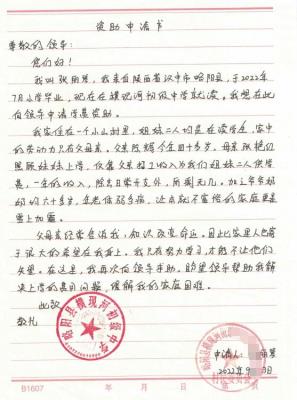 资助申请书
尊敬的领导:
您们好!
我叫张丽慧,我来自陕西省汉中市略阳县,于2022年
7月小学毕业,现在在横现河初级中学就读。我想在此
向领导申请学费资助。
我家住在一个小山村里,姐妹二人均是在读学生,家中
的劳动力只有父母亲。
照顾妹妹上学,仅靠父亲打工收入为我们姐妹二人供学
费,一年的收入,除去日常开支外,所剩无几。加之年爷爷
妈的六十多岁,年老体弱多病,让本就不富裕的家庭更是
雪上加霜。
父母亲经常告诉我:知识改变命运。因此家里人也寄
予很大的希望在我身上。我只有努力学习,才能不让他们
失望。在这里,我再次向领导求助,盼望领导帮助我解
决上学的费用问题,缓解我的家庭困难。
此致
敬礼
略阳县横现河初级中学
申请人:
2022年9月 日
B1607
年 月 日
第 页